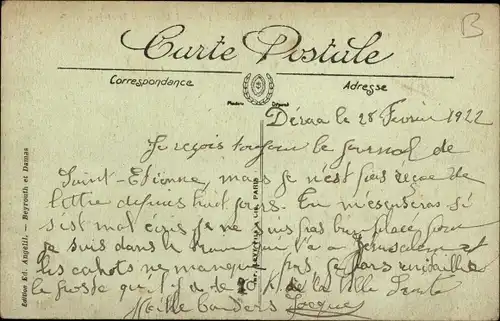 B
Carte Postale
Correspondance
Adresse
Modèle Déposé
Edition Ed. Angelil. — Beyrouth et Damas
PARIS
Déraa le 28 Fevrier 1922
Je reçois toujour le journal de
Saint-Etienne, mais je n'est pas reçue de
lettre depuis huit jours. En m'escuseras si
s'est mal écris je ne suis pas bien placé pour
je suis dans le train qui va a Jerusalem et
les cahots ne manque pas je vais
le gosse qui l'y a de 20 K. de la ville Sainte
Meille Jacques